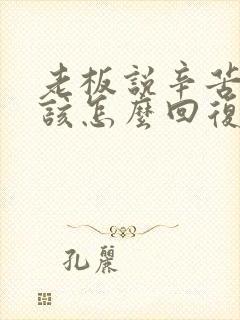 老板說辛苦
該怎麼回復
孔麗